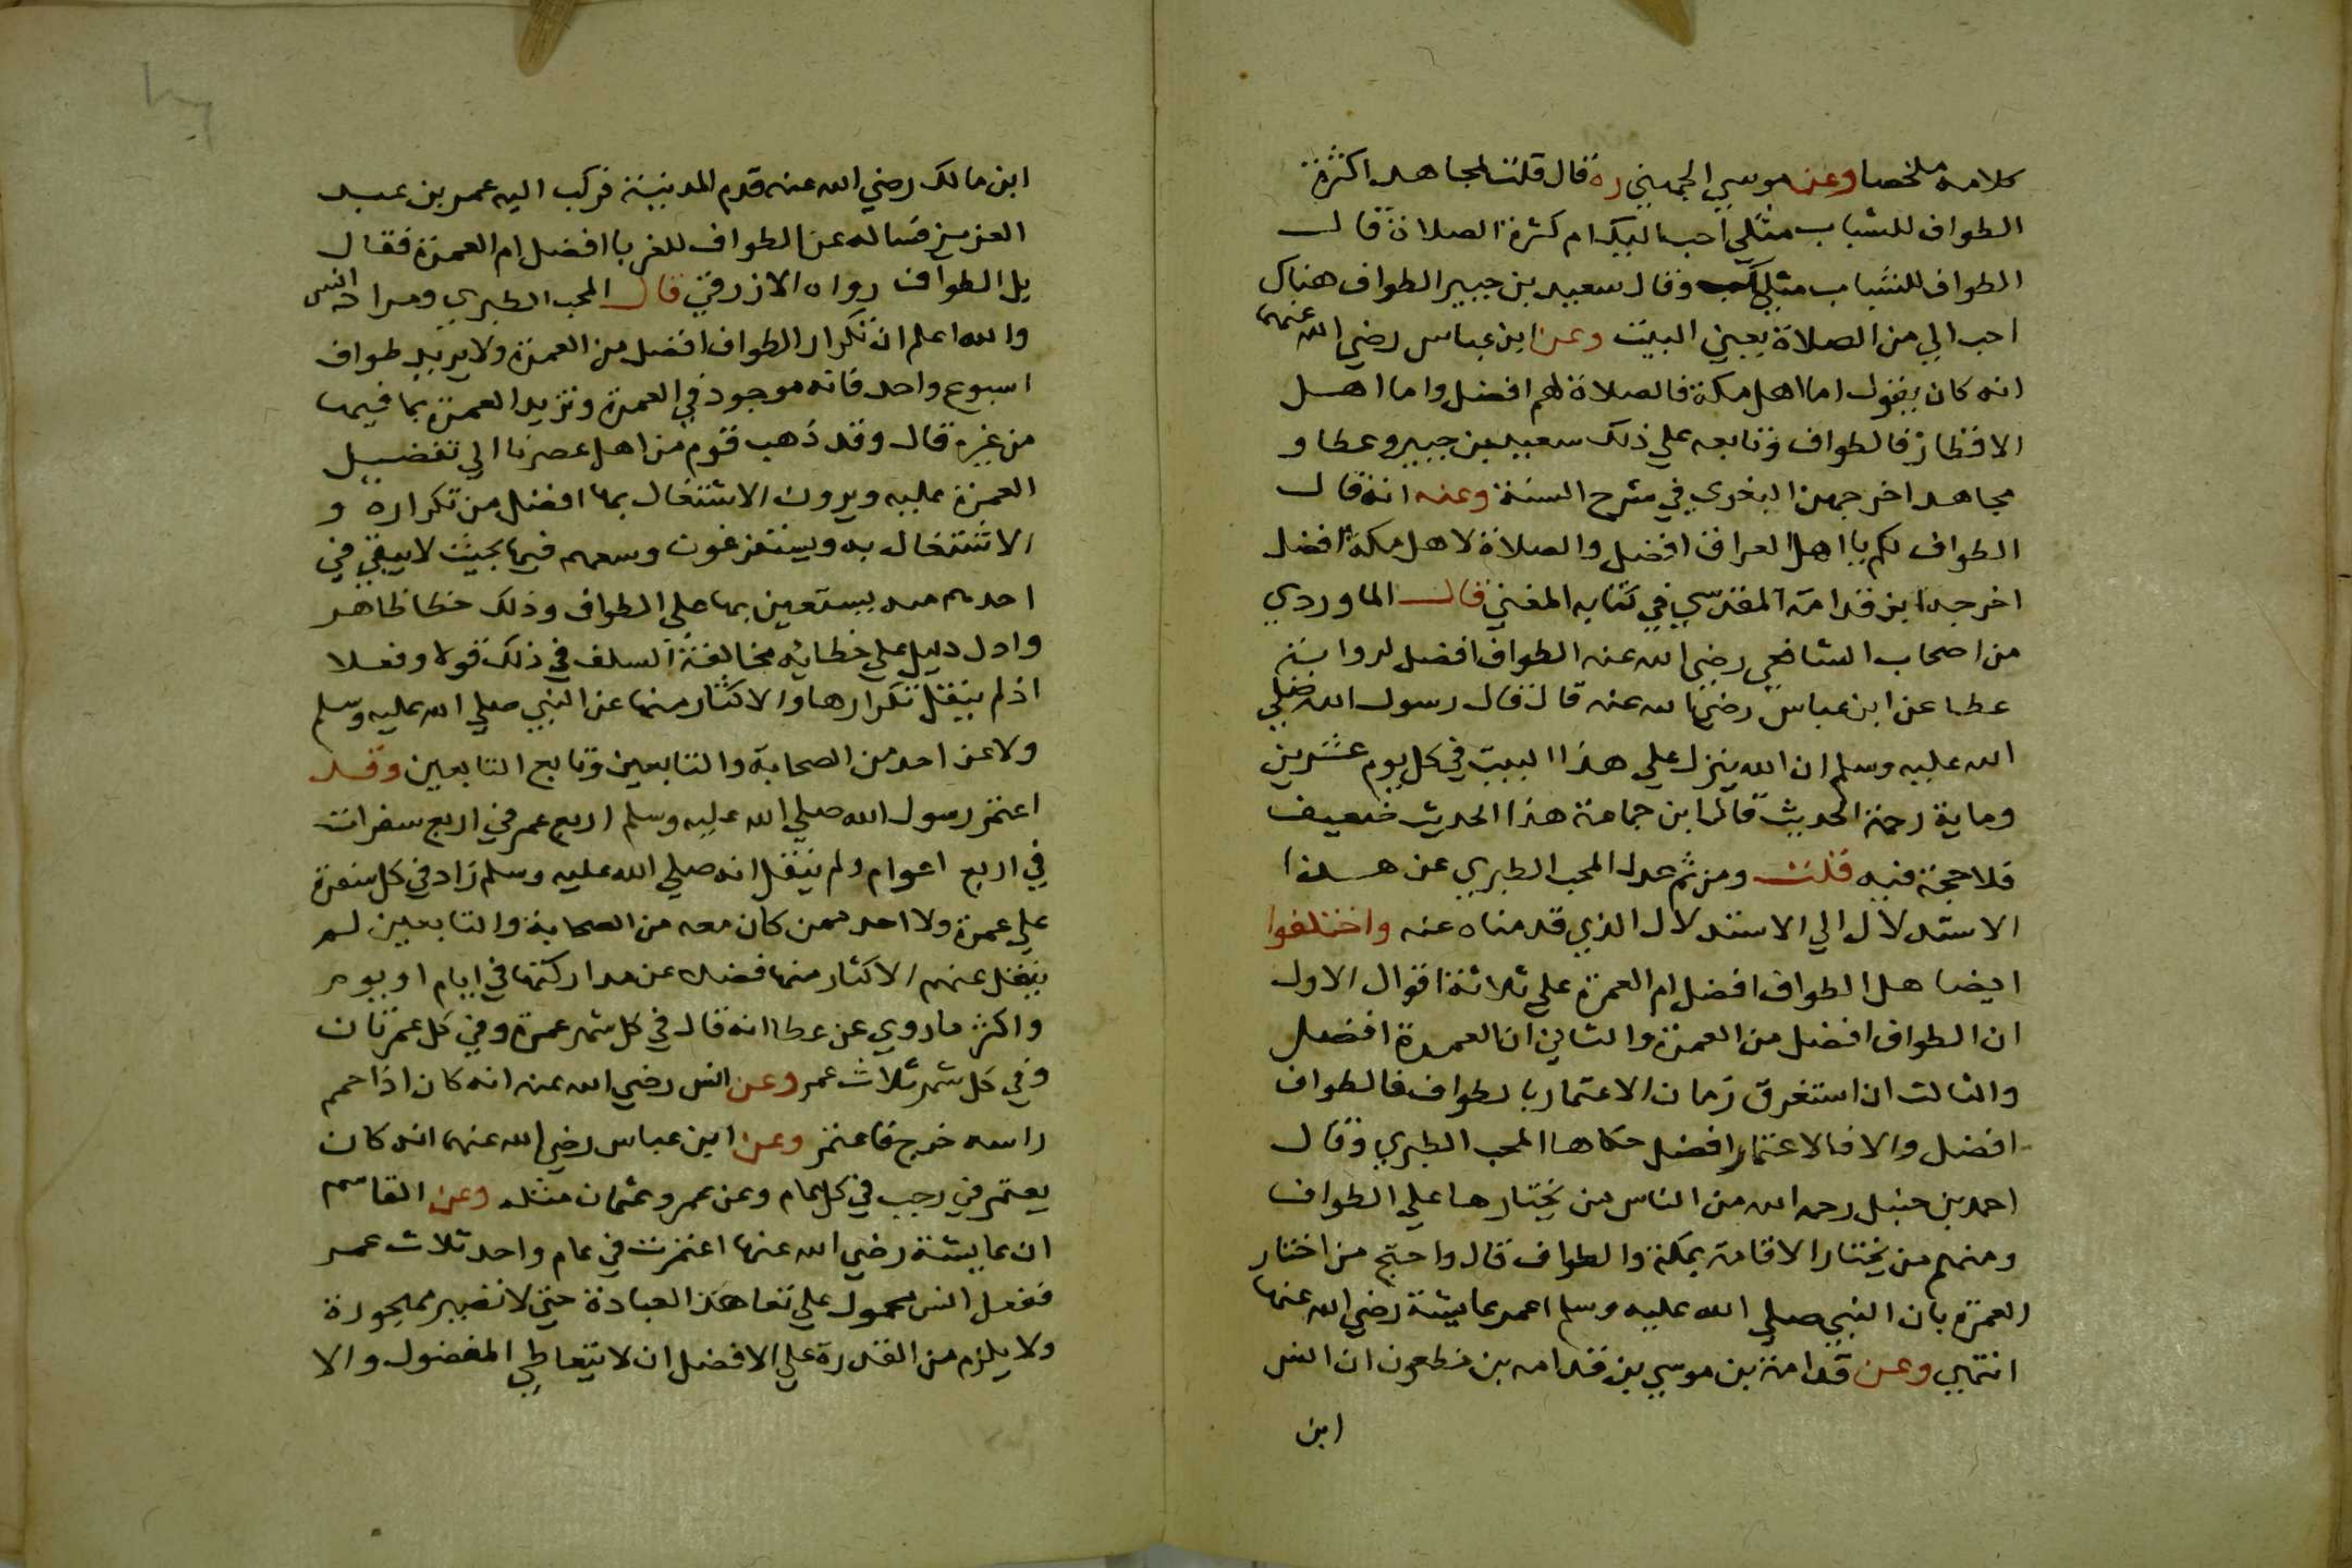 كلامه ملخصا وعن موسي الجهني ره قال قلت لمجاهد اكثرة
الطواف للشباب مثلي احب اليك ام كثرة الصلاة قال
الطواف للشباب مثلك وقال سعيد بن جبير الطواف هناك
احب الي من الصلاة يعني البيت وعن ابن عباس رضي الله عنهما
انه كان يقول اما اهل مكة فالصلاة لهم افضل واما اهل
الاقطار فالطواف وتابعه علي ذلك سعيد بن جبير وعطا و
مجاهد اخرجهن البغوي في شرح السنة وعنه انه قال
الطواف لكم يا اهل العراق افضل والصلاة لاهل مكة افضل
اخرجه ابن قدامة المقدسي في كتابه المغني قال الماوردي
من اصحاب الشافعي رضي الله عنه الطواف افضل لرواية
عطا عن ابن عباس رضي الله عنه قال قال رسول الله صلي
الله عليه وسلم ان الله ينزل علي هذا البيت في كل يوم عشرين
وماية رحمة الحديث قال ابن جماعة هذا الحديث ضعيف
فلا حجة فيه قلت ومن ثم عدل المحب الطبري عن هذا
الاستدلال الي الاستدلال الذي قدمناه عنه واختلفوا
ايضا هل الطواف افضل ام العمرة علي ثلاثة اقوال الاول
ان الطواف افضل من العمرة والثاني ان العمرة افضل
والثالث ان استغرق زمان الاعتمار بالطواف فالطواف
افضل والا فالاعتمار افضل حكاها المحب الطبري وقال
احمد بن حنبل رحمه الله من الناس من يختارها علي الطواف
ومنهم من يختار الاقامة بمكة والطواف قال واحتج من اختار
العمرة بان النبي صلي الله عليه وسلم اعمر عايشة رضي الله عنها
انتهي وعن قدامة بن موسي بن قدامه بن مظعون ان انس
ابن
ابن مالك رضي الله عنه قدم المدينة فركب اليه عمر بن عبد
العزيز فساله عن الطواف للغربا افضل ام العمرة فقال
بل الطواف رواه الازرقي قال المحب الطبري ومراد انس
والله اعلم ان تكرار الطواف افضل من العمرة ولا يريد طواف
اسبوع واحد فانه موجود في العمرة وتزيد العمرة بما فيها
من غيره قال وقد ذهب قوم من اهل عصرنا الي تفضيل
العمرة عليه ويرون الاشتغال بها افضل من تكراره و
الاشتغال به ويستفرغون وسعهم فيها بحيث لا يبقي في
احدهم يستعين بها علي الطواف وذلك خطا ظاهر
وادل دليل علي خطايه مخالفة السلف في ذلك قولا وفعلا
اذ لم ينقل تكرارها والاكثار منها عن النبي صلي الله عليه وسلم
ولا عن احد من الصحابة والتابعين وتابع التابعين وقد
اعتمر رسول الله صلي الله عليه وسلم اربع عمر في اربع سفرات
في اربع اعوام ولم ينقل انه صلي الله عليه وسلم زاد في كل سفرة
علي عمرة ولا احد ممن كان معه من الصحابة والتابعين لم
ينقل عنهم الاكثار منها فضلا عن مداركتها في ايام او يوم
واكثر ما روي عن عطا انه قال في كل شهر عمرة وفي كل عمرتان
وفي كل شهر ثلاث عمر وعن انس رضي الله عنه انه كان اذا حمم
راسه خرج فاعتمر وعن ابن عباس رضي الله عنهما انه كان
يعتمر في رجب في كل عام وعن عمر وعثمان مثله وعن القاسم
ان عايشة رضي الله عنها اعتمرت في عام واحد ثلاث عمر
ففعل انس محمول علي تعاهد العبادة حتي لا تصير مهجورة
ولا يلزم من القدرة علي الافضل ان لا يتعاطي المفضول والا